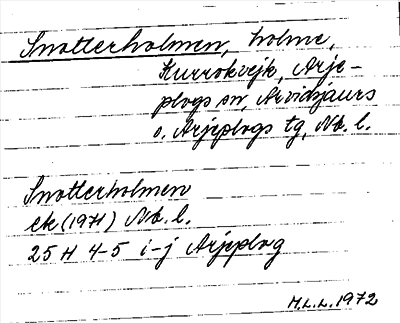 Snotterholmen, holme,
Kurrokvejk, Arje-
plogs sn, Arvidsjaurs
o. Arjeplogs tg, Nb. l.
Snotterholmen
ek (1971) Nb. l.
25 H 4-5 i-j Arjeplog
M.L.L. 1972